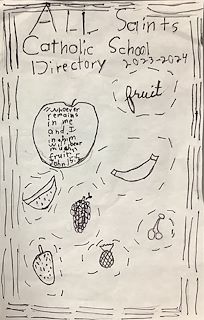 ALL Saints
Catholic School
Directory 2023-2024
fruit
"whoever
remains
in me
and I
in him
will bear
much
fruit"
John 15:5